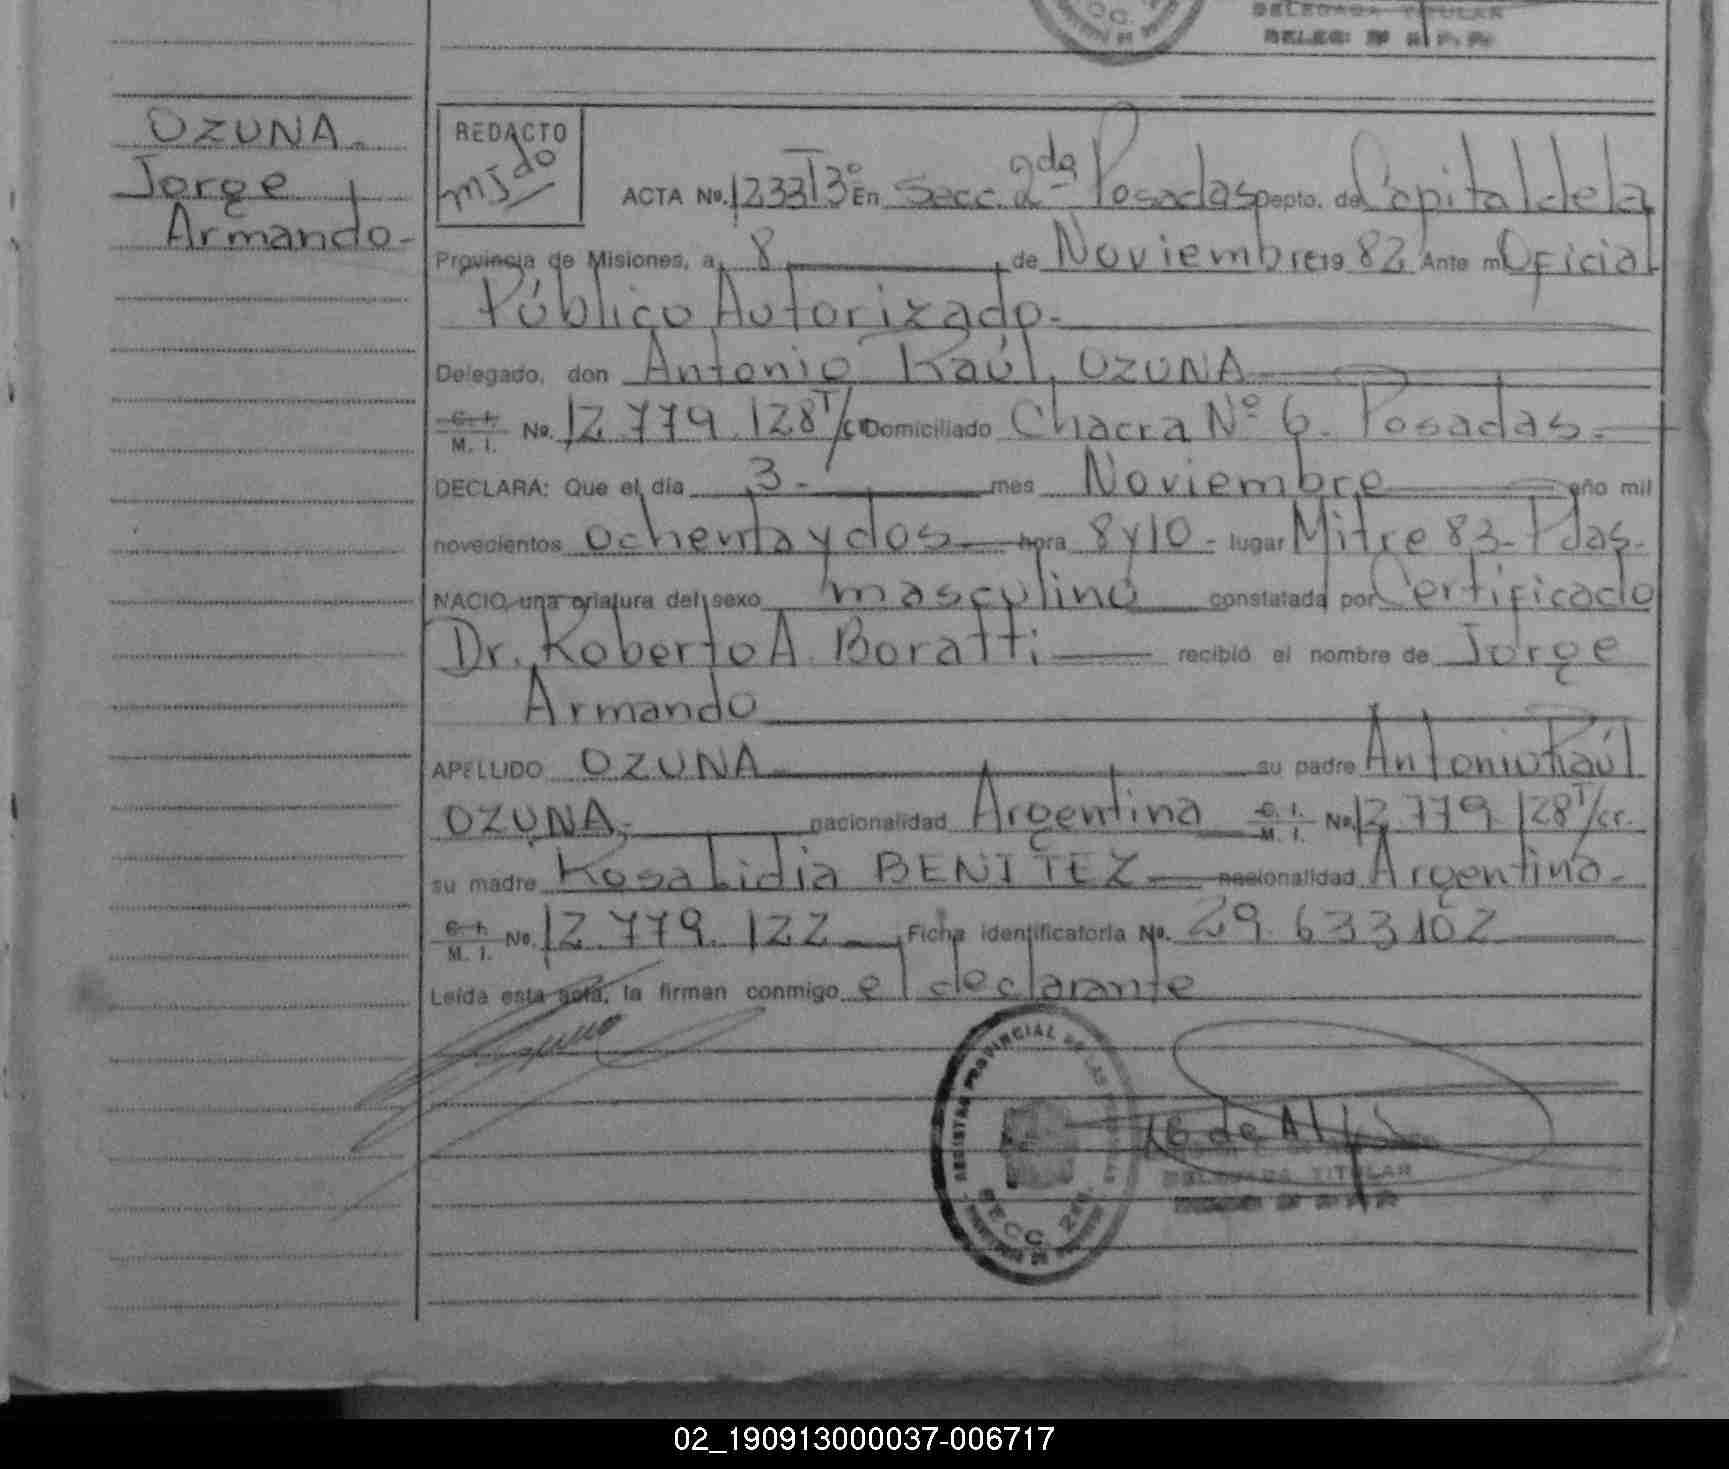 DELEGADA TITULAR
OZUNA.
Jorge
Armando-
REDACTO
ACTA No. 1233 T3º En Secc. 2da Posadas Depto. de Capital de la
Provincia de Misiones, a 8 de Noviembre 19 82 Ante mi Oficial
Público Autorizado.
Delegado, don Antonio Raúl OZUNA
C. I. M. I. No. 12.779.128 T/cr Domiciliado Chacra Nº 6. Posadas.
DECLARA: Que el día 3- mes Noviembre año mil
novecientos ochenta y dos hora 8 y 10 - lugar Mitre 83- Pdas-
NACIO una criatura del sexo masculino constatada por Certificado
Dr. Roberto A. Boratti recibió el nombre de Jorge
Armando
APELLIDO OZUNA su padre Antonio Raúl
OZUNA, nacionalidad Argentina C. I. M. I. No. 12.779.128 T/cr.
su madre Rosa Lidia BENITEZ nacionalidad Argentina-
C. I. M. I. No. 12.779.122 Ficha identificatoria No. 29.633102
Leída esta acta, la firman conmigo el declarante
REGISTRO PROVINCIAL DE LAS
SECC. 2da.
DELEGADA TITULAR
02_190913000037-006717